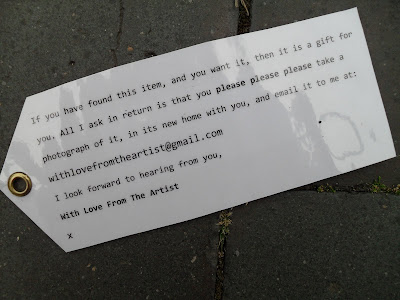 If you have found this item, and you want it, then it is a gift for
you. All I ask in return is that you please please please take a
photograph of it, in its new home with you, and email it to me at:
withlovefromtheartist@gmail.com
I look forward to hearing from you,
With Love From The Artist
x